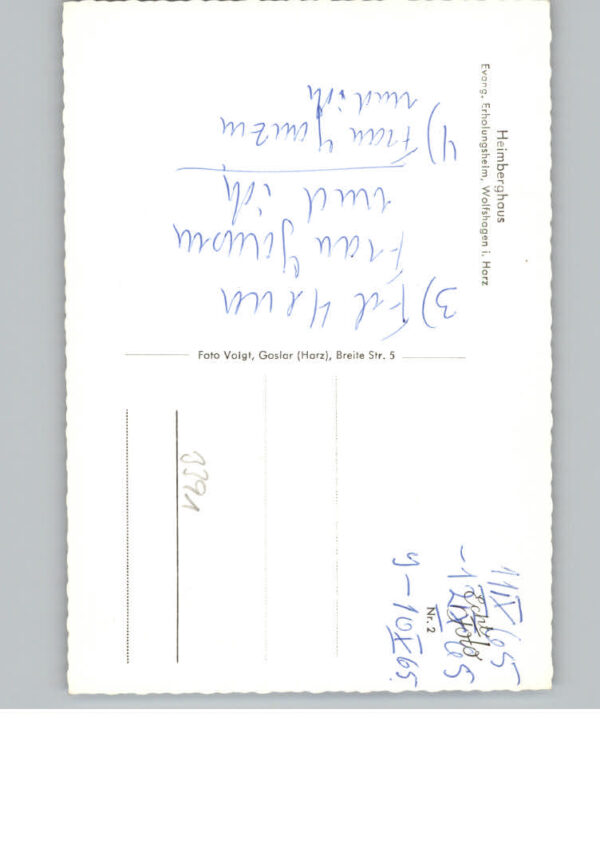 Heimberghaus
Evang. Erholungsheim, Wolfshagen i. Harz
Foto Voigt, Goslar (Harz), Breite Str. 5
Nr. 2
3) Frl
Frau
und ich
4) Frau
und ich
11 IX 65
Echt Foto
9-10 X 65
3391